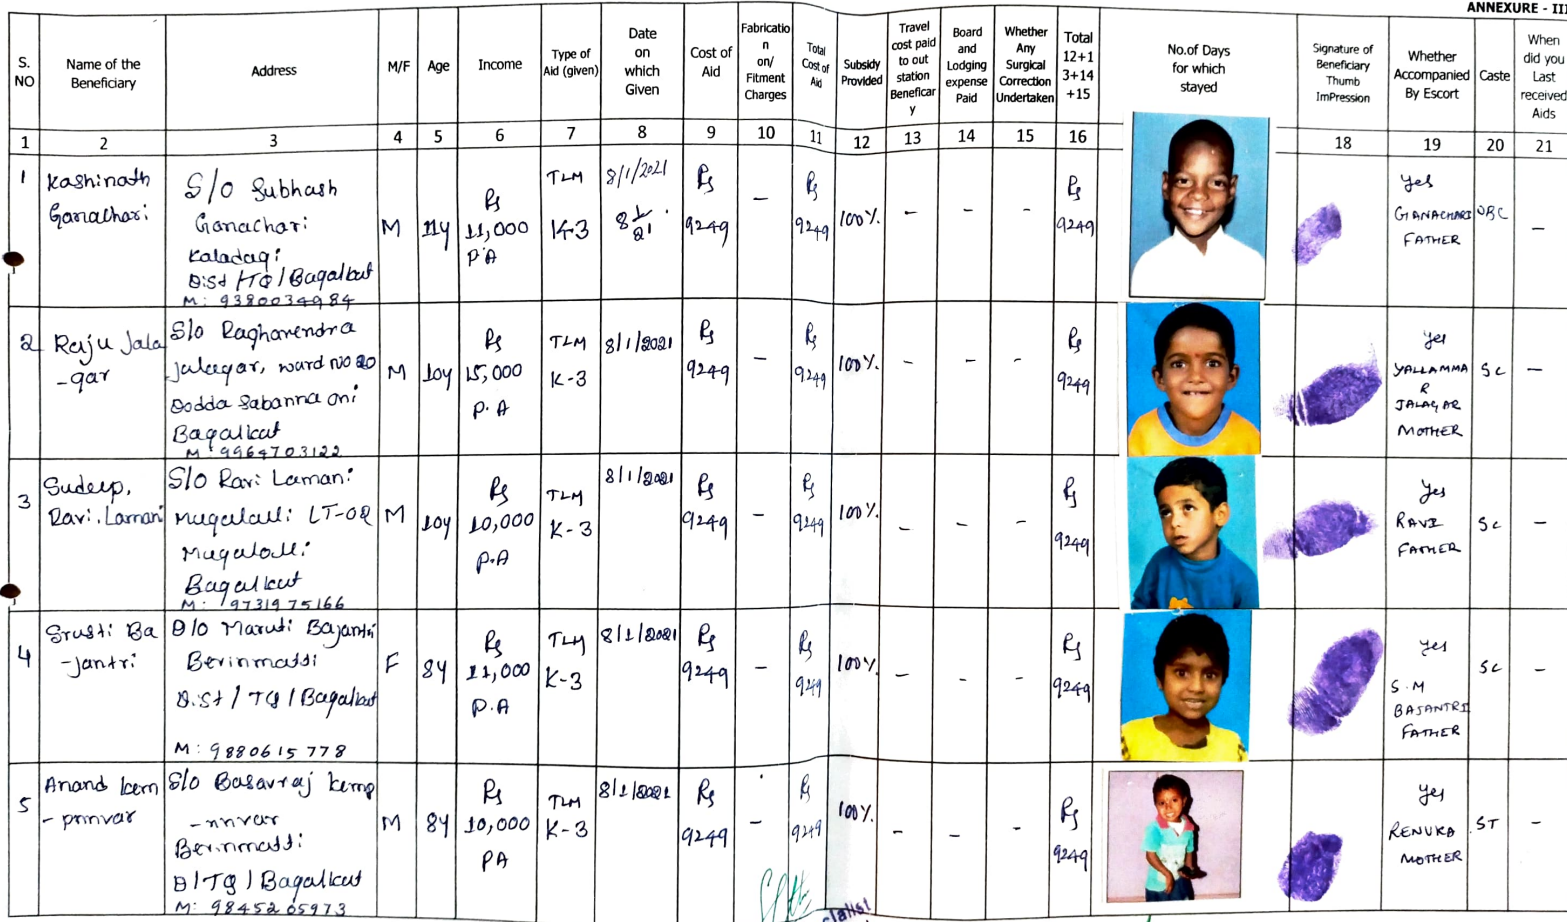 ANNEXURE - III
S. NO
Name of the Beneficiary
Address
M/F
Age
Income
Type of Aid (given)
Date on which Given
Cost of Aid
Fabricatio n on/ Fitment Charges
Total Cost of Aid
Subsidy Provided
Travel cost paid to out station Beneficar y
Board and Lodging expense Paid
Whether Any Surgical Correction Undertaken
Total 12+1 3+14 +15
No.of Days for which stayed
Signature of Beneficiary Thumb ImPression
Whether Accompanied By Escort
Caste
When did you Last received Aids
1 2 3 4 5 6 7 8 9 10 11 12 13 14 15 16 18 19 20 21
1
Kashinath
Ganachari
S/O Subhash
Ganachari
Kaladagi
Dist/TQ/Bagalkut
M: 9380034984
M
11y
Rs
11,000
P.A
TLM
K-3
8/1/2021
8/1/21
Rs
9249
-
Rs
9249
100%
-
-
-
Rs
9249
Yes
GANACHARI
FATHER
OBC
-
2
Raju Jala
-gar
S/o Raghavendra
Jalagar, ward no 20
Dodda Sabanna oni
Bagalkut
M 9964703122
M
10y
Rs
15,000
P.A
TLM
K-3
8/1/2021
Rs
9249
-
Rs
9249
100%.
-
-
-
Rs
9249
Yes
YALLAMMA
R
JALAGAR
MOTHER
SC
-
3
Sudeep,
Ravi.Lamani
S/O Ravi Lamani
Mugalolli LT-02
Mugalolli
Bagalkut
M: 9731975166
M
10y
Rs
10,000
P.A
TLM
K-3
8/1/2021
Rs
9249
-
Rs
9249
100%.
-
-
-
Rs
9249
Yes
RAVI
FATHER
SC
-
4
Srusti Ba
-jantri
D/O Maruti Bajantri
Berinmatti
Dist/TQ/Bagalkut
M: 9880615778
F
8y
Rs
11,000
P.A
TLM
K-3
8/1/2021
Rs
9249
-
Rs
9249
100%.
-
-
-
Rs
9249
Yes
S.M
BAJANTRI
FATHER
SC
-
5
Anand kem
S/o Basavraj kemp
-nnvar
Berinmatti
D/TQ/Bagalkut
M: 9845205973
M
8y
Rs
10,000
PA
TLM
K-3
8/1/2021
Rs
9249
-
Rs
9249
100%.
-
-
-
Rs
9249
Yes
RENUKA
MOTHER
ST
-